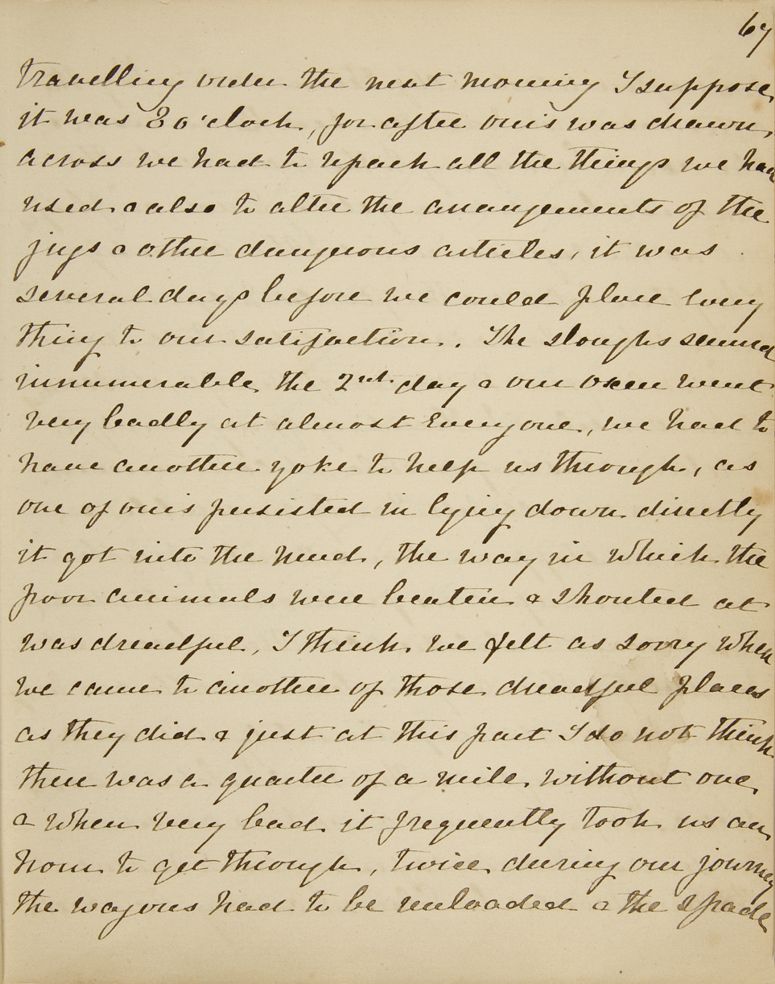 67
travelling order the next morning I suppose
it was 8 o'clock, for after ours was drawn
across we had to repack all the things we had
used & also to alter the arrangements of the
jugs & other dangerous articles, it was
several days before we could place every
thing to our satisfaction. The sloughs seemed
innumerable the 2nd day & our oxen went
very badly at almost everyone, we had to
have another yoke to help us through, as
one of ours persisted in lying down directly
it got into the mud, the way in which the
poor animals were beaten & shouted at
was dreadful, I think we felt as sorry when
we came to another of those dreadful places
as they did & just at this part I do not think
there was a quarter of a mile without one
& when very bad it frequently took us an
hour to get through, twice during our journey
the wagons had to be unloaded & the spade